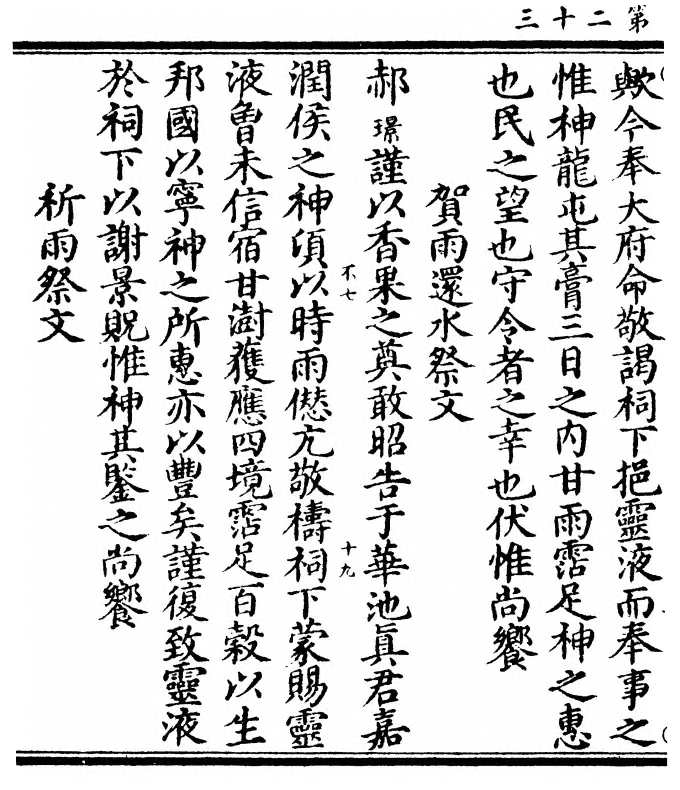 第二十三
歟今奉大府命敬謁祠下挹靈液而奉事之
惟神龍屯其膏三日之内甘雨霑足神之惠
也民之望也守令者之幸也伏惟尚饗
賀雨還水祭文
郝璟謹以香果之奠敢昭告于華池眞君嘉
不七
十九
潤侯之神須以時雨僁亢敬禱祠下蒙賜靈
液曾未信宿甘澍獲應四境霑足百穀以生
邦國以寧神之所惠亦以豐矣謹復致靈液
於祠下以謝景貺惟神其鑒之尚饗
祈雨祭文